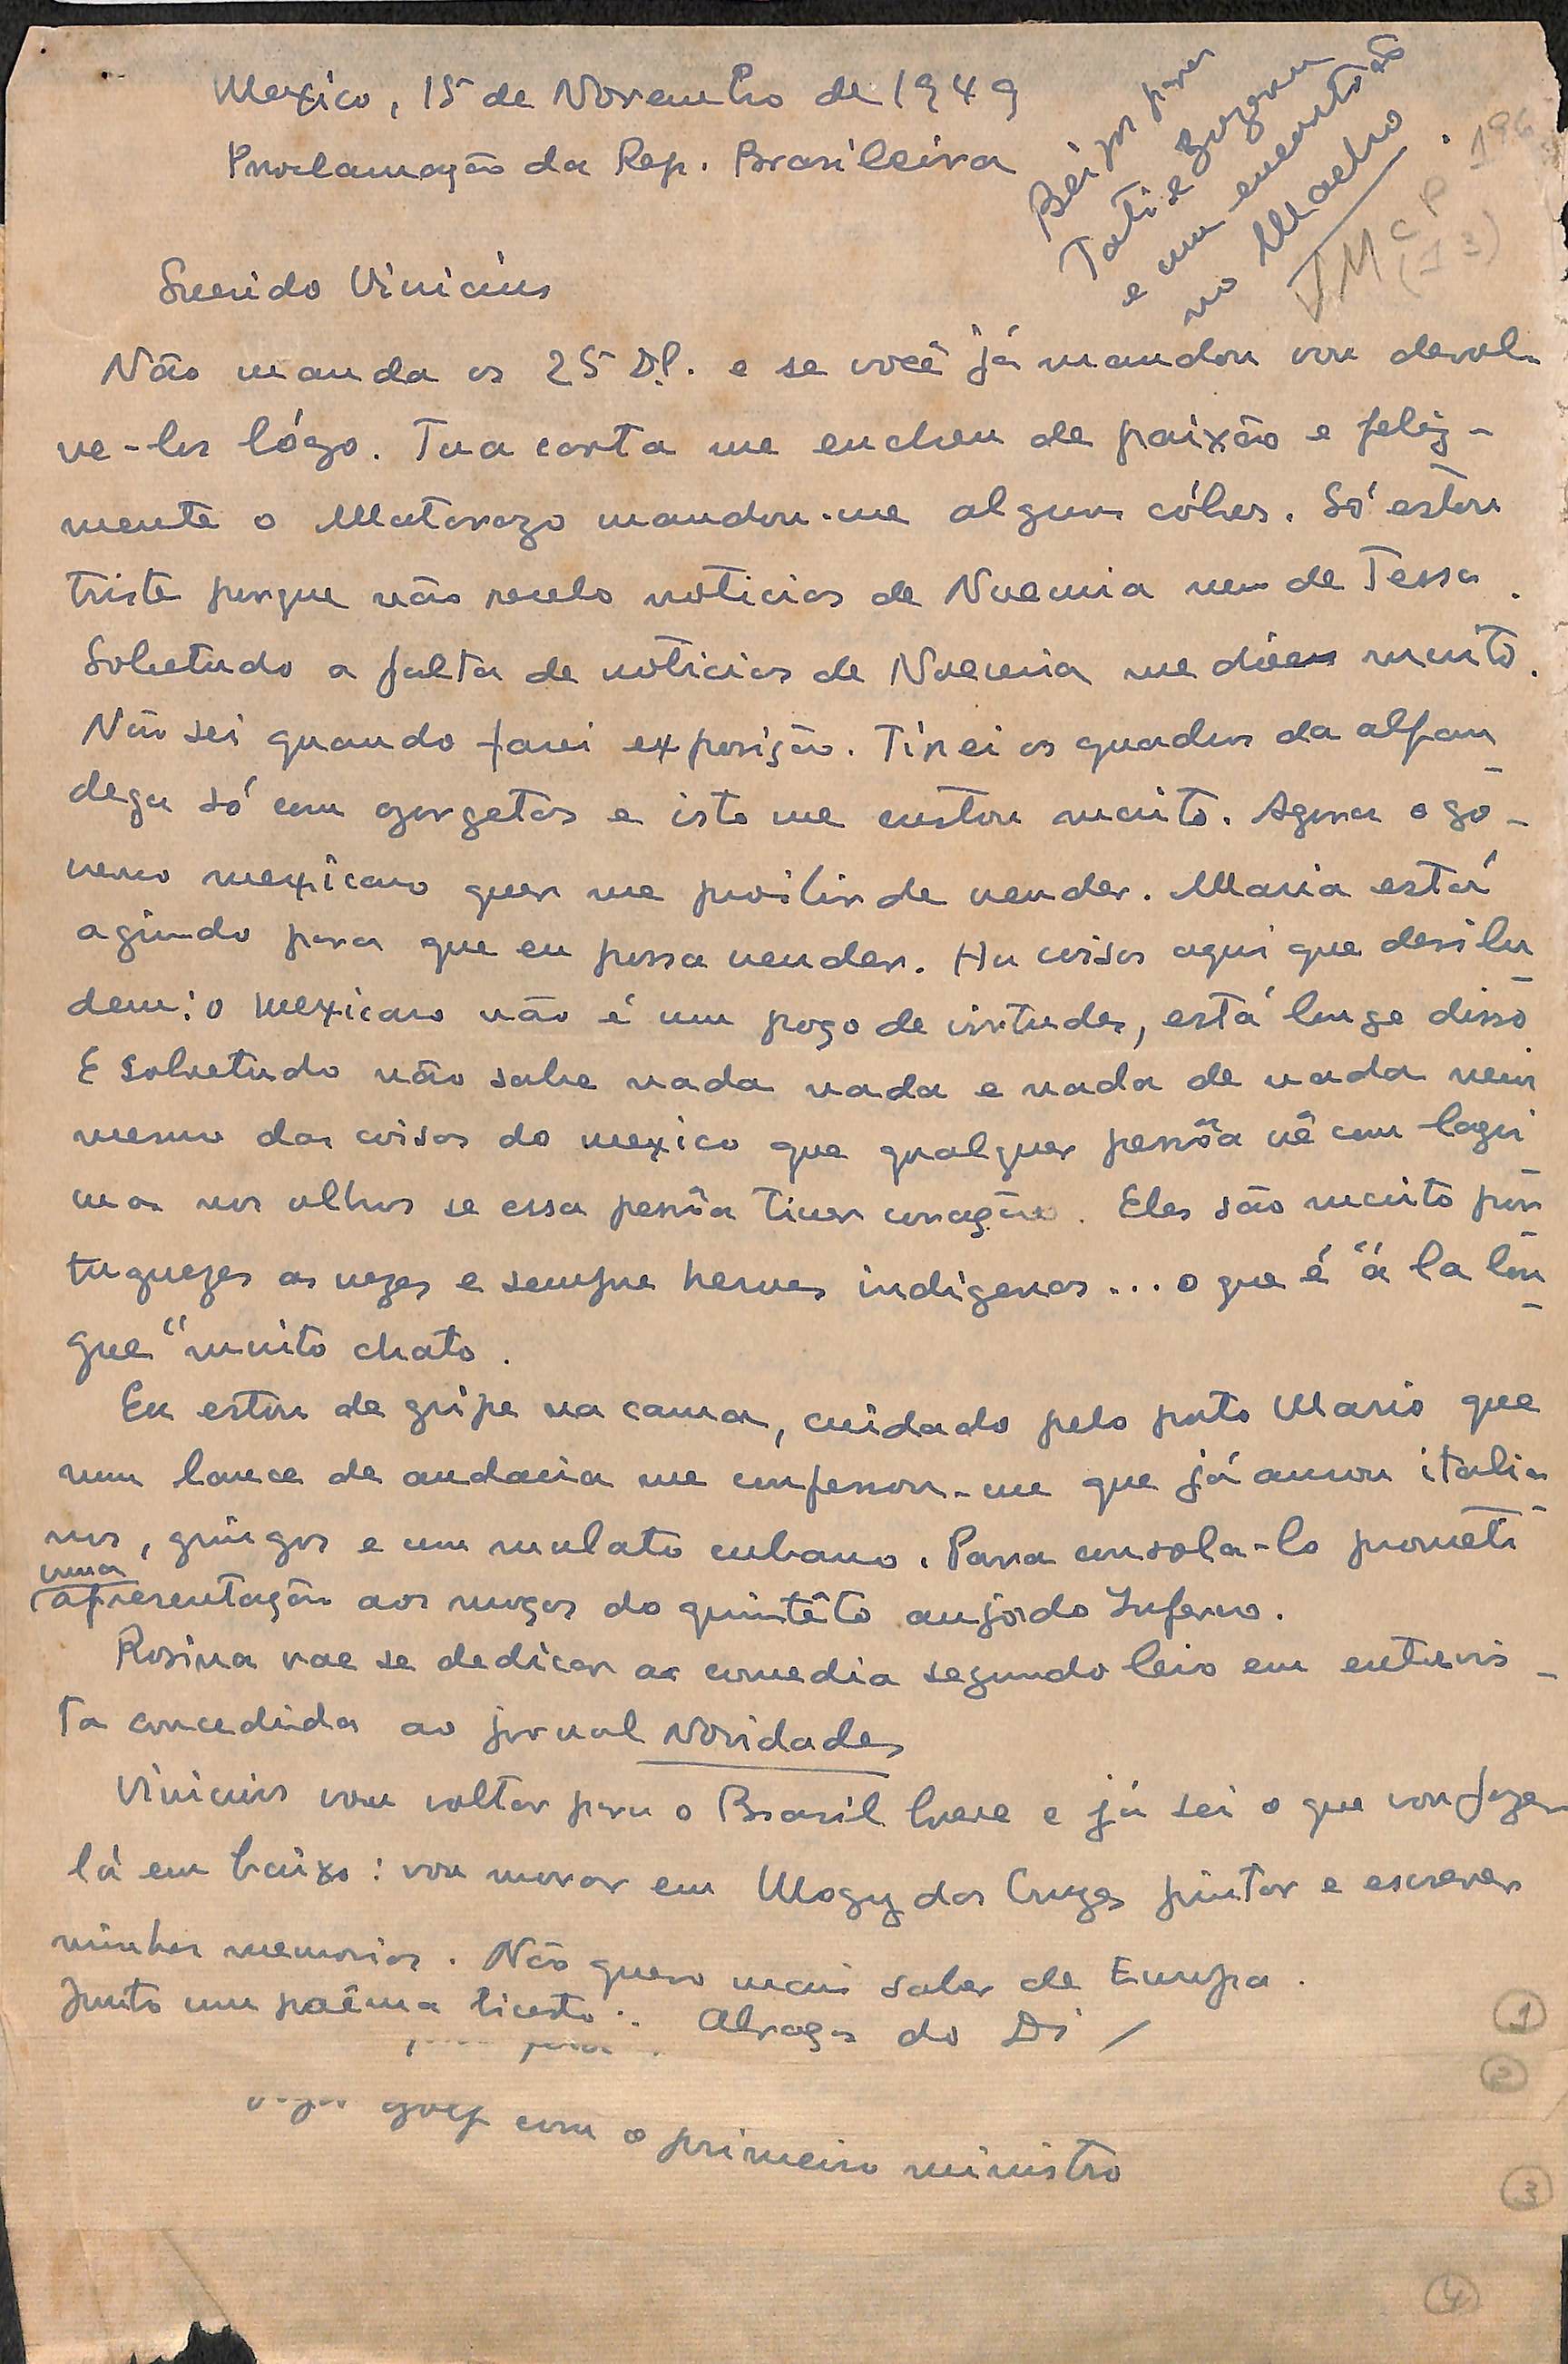 Mexico, 15 de Novembro de 1949
Proclamação da Rep. Brasileira
Beijos para
Tati e Suzana
e um encontrão
no Macho
VMcp 196
(13)
Querido Vinicius
Não manda os 25 Dl. e se você já mandou vou devol-
ve-los lógo. Tua carta me encheu de paixão e feliz-
mente o Matarazo mandou-me alguns cóbres. Só estou
triste porque não recebo noticias de Noemia nem de Tessa.
Sobretudo a falta de noticias de Noemia me dóem muito.
Não sei quando farei exposição. Tirei os quadros da alfan-
dega só com gorgetas e isto me custou muito. Agora o go-
verno mexicano quer me proibir de vender. Maria está
agindo para que eu possa vender. Ha coisas aqui que desilu-
dem: o mexicano não é um poço de virtudes, está longe disso
E sobretudo não sabe nada nada e nada de nada nem
mesmo das coisas do mexico que qualquer pessôa vê com lagri-
mas nos olhos se essa pessôa tiver coração. Eles são muito por-
tuguezes as vezes e sempre heroes indigenas... o que é "á la lon-
gue" muito chato.
Eu estou de gripe na cama, cuidado pelo puto Mario que
num lance de audacia me confessou-me que já amou italia-
nos, gringos e um mulato cubano. Para consola-lo prometi
uma
apresentação aos moços do quintêto anjos do Inferno.
Rosina vae se dedicar as comedia segundo leio em entrevis-
ta concedida ao jornal Novidades
Vinicius vou voltar para o Brasil breve e já sei o que vou fazer
lá em baixo: vou morar em Mogy das Cruzes pintar e escrever
minhas memorias. Não quero mais saber de Europa.
Junto um poêma licesto. Abraços do Di
com o primeiro ministro
1
2
3
4